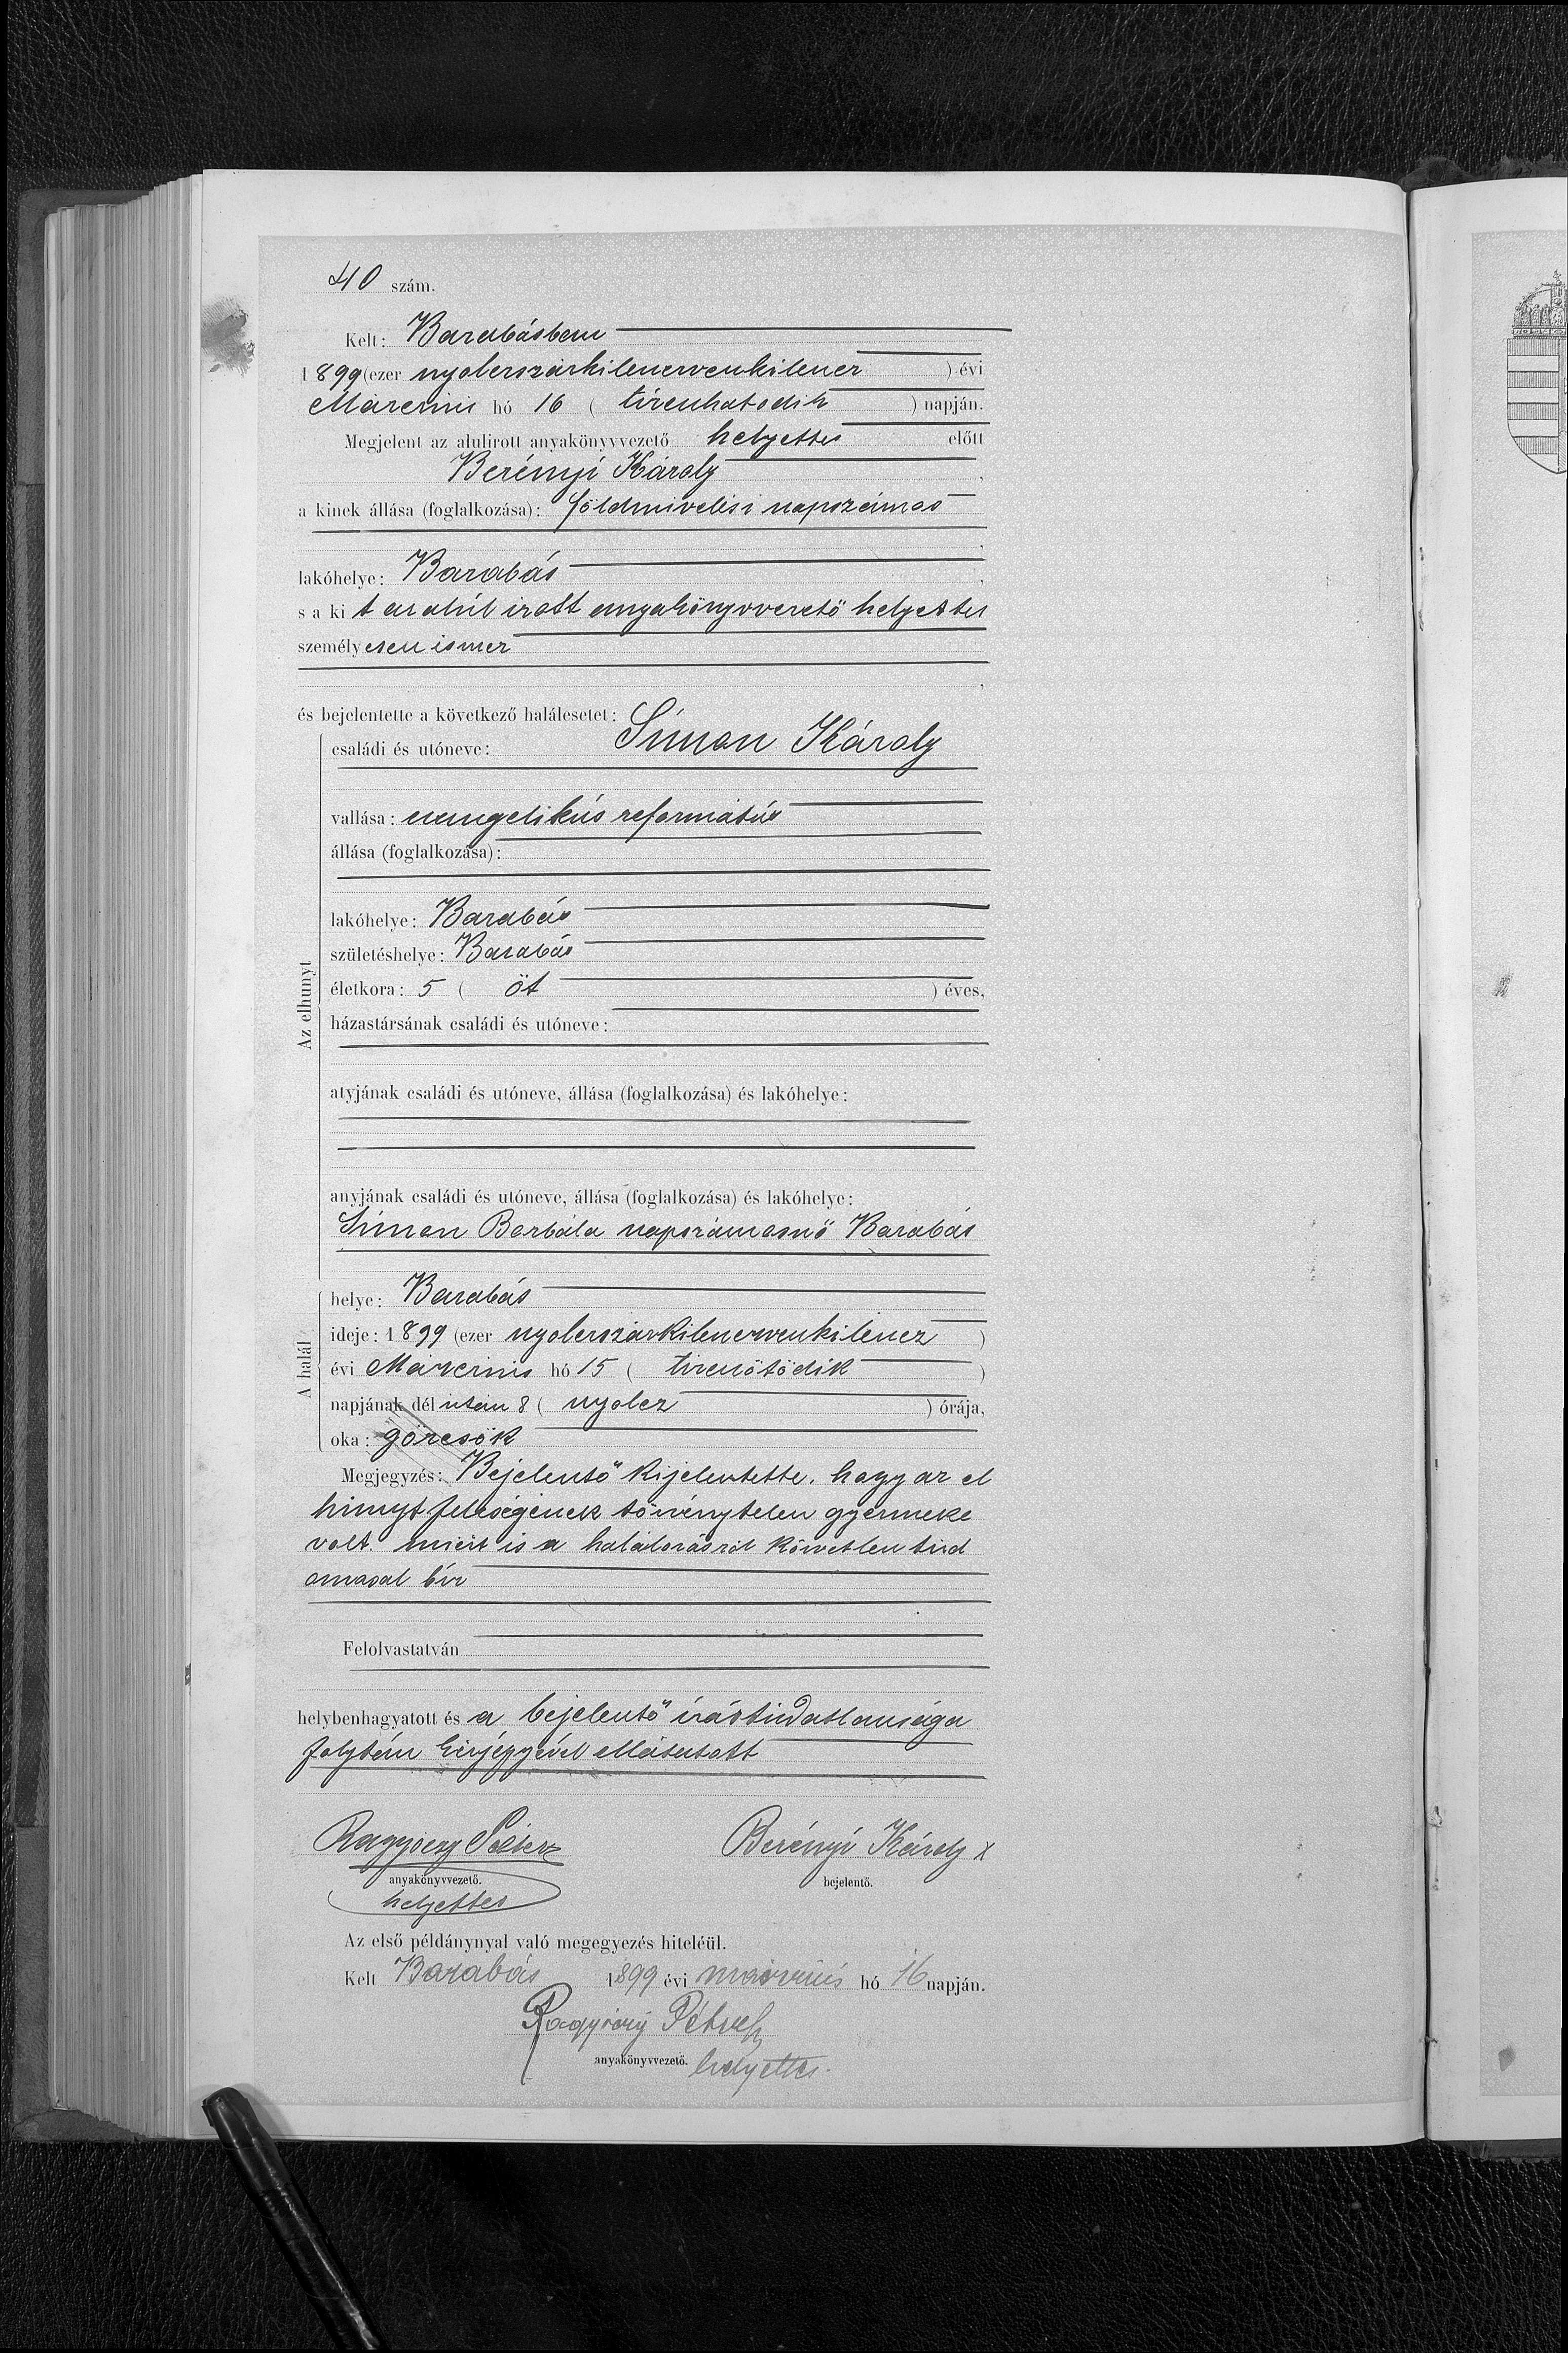 40 szám.
Kelt: Barabásban
1899 (ezer nyolczszázkilenczvenkilencz ) évi
Márczius hó 16 ( tizenhatodik ) napján.
Megjelent az alulirott anyakönyvvezető helyettes előtt
Berényi Károly ,
a kinek állása (foglalkozása): földmivelési napszámos
,
lakóhelye: Barabás ,
s a kit az alúl irott anyakönyvvezető helyettes
személyesen ismer
,
és bejelentette a következő halálesetet:
családi és utóneve: Simon Károly
vallása: evangelikús református
állása (foglalkozása):
lakóhelye: Barabás
születéshelye: Barabás
életkora: 5 ( öt ) éves,
házastársának családi és utóneve:
Az elhunyt
atyjának családi és utóneve, állása (foglalkozása) és lakóhelye:
anyjának családi és utóneve, állása (foglalkozása) és lakóhelye:
Simon Borbála napszámosnő Barabás
helye: Barabás
ideje: 1899 (ezer nyolczszázkilenczvenkilencz )
A halál
évi Márczius hó 15 ( tizenötödik )
napjának dél után 8 ( nyolcz ) órája,
oka: görcsök
Megjegyzés: Bejelentő kijelentette, hogy az el
húnyt feleségének törvénytelen gyermeke
volt. miért is a halálozásról közvetlen tud
omással bír
Felolvastatván
helybenhagyatott és a bejelentő írástudatlansága
folytán kézjegyével elláttatott
Péter
anyakönyvvezető.
helyettes
Berényi Károly x
bejelentő.
Az első példánynyal való megegyezés hiteléül.
Kelt Barabás 1899 évi márczius hó 16 napján.
Péter
anyakönyvvezető. helyettes.